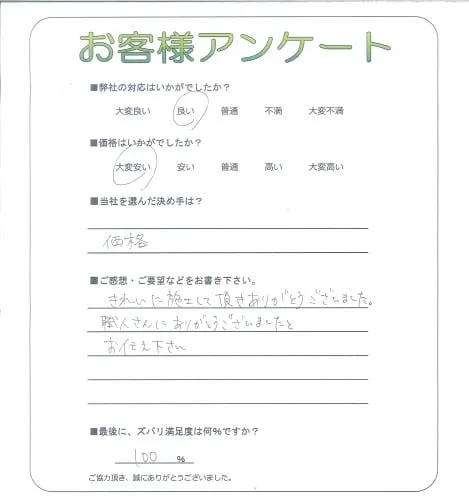 お客様アンケート
■弊社の対応はいかがでしたか？
大変良い 良い 普通 不満 大変不満
■価格はいかがでしたか？
大変安い 安い 普通 高い 大変高い
■当社を選んだ決め手は？
価格
■ご感想・ご要望などをお書き下さい。
きれいに施工して頂きありがとうございました。
職人さんにありがとうございましたと
お伝え下さい
■最後に、ズバリ満足度は何％ですか？
100 %
ご協力頂き、誠にありがとうございました。